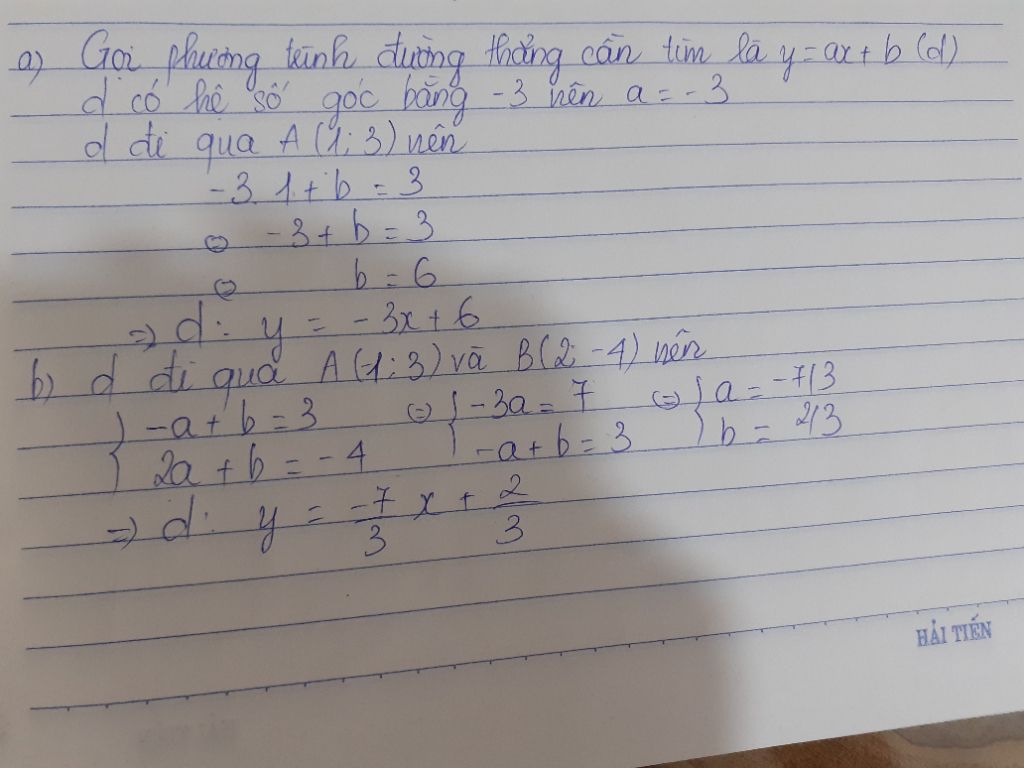 a) Gọi phương trình đường thẳng cần tìm là y = ax + b (d)
d có hệ số góc bằng -3 nên a = -3
d đi qua A (1; 3) nên
-3. 1 + b = 3
⇔ -3 + b = 3
⇔ b = 6
=> d: y = -3x + 6
b) d đi qua A (1; 3) và B (2; -4) nên
{ -a + b = 3 ⇔ { -3a = 7 ⇔ { a = -7/3
{ 2a + b = -4 { -a + b = 3 { b = 2/3
=> d: y = -7/3 x + 2/3
HẢI TIẾN